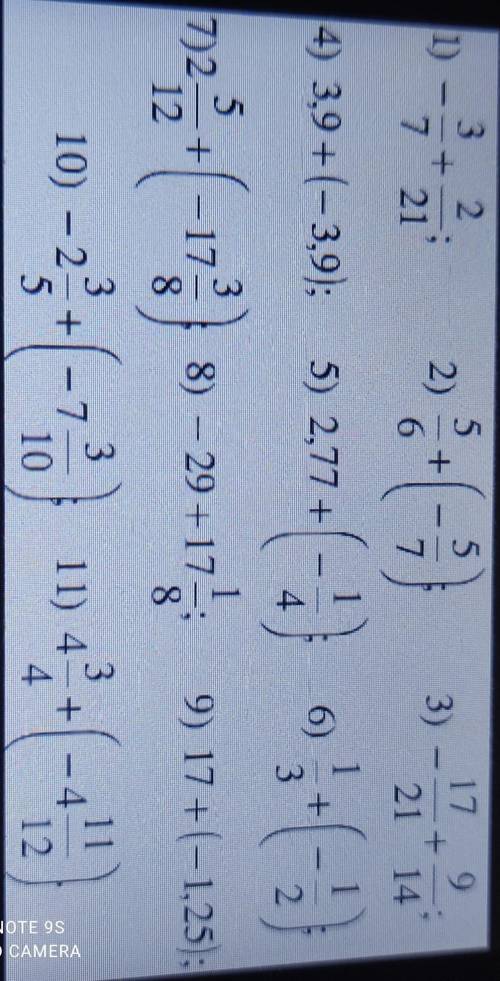 1) −3/7 + 2/21; 2) 5/6 + (−5/7); 3) −17/21 + 9/14;
4) 3,9 + (−3,9); 5) 2,77 + (−1/4); 6) 1/3 + (−1/2);
7) 2 5/12 + (−17 3/8); 8) −29 + 17 1/8; 9) 17 + (−1,25);
10) −2 3/5 + (−7 3/10); 11) 4 3/4 + (−4 11/12).
NOTE 9S
CAMERA